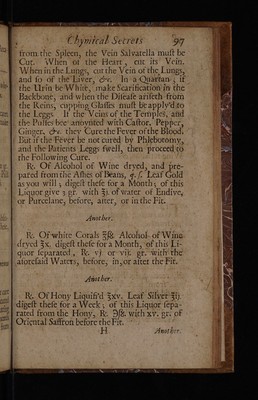 Chymical Secrets 97
from the Spleen, the Vein Salvatella muſt be
Cut. When of the Heart, cut its Vein.
When in the Lungs, cut the Vein of the Lungs,
and ſo of the Liver, &c. In a Quartan, if
the Urin be White, make Scarification in the
Backbone, and when the Diſeaſe ariſeth from
the Reins, cupping Glaſſes muſt be apply'd to
the Leggs. If the Veins of the Temples, and
the Pulſes bee anoynted with Caſtor. Pepper,
Ginger, &c. they Cure the Fever of the Blood.
But if the Fever be not cured by Phlebotomy,
and the Patients Leggs ſwell, then proceed to
the Following Cure.
℞. Of Alcohol of Wine dryed, and pre-
pared from the Aſhes of Beans, q. ſ. Leaf Gold
as you will; digeſt theſe for a Month; of this
Liquor give 3 gr. with ℥i. of water of Endive,
or Purcelane, before, after, or in the Fit.
Another.
℞. Of white Corals ℥ſs. Alcohol of Wine
dryed ℥x. digeſt theſe for a Month, of this Li-
quor ſeparated, ℞. vj. or vij. gr. with the
aforeſaid Waters, before, in, or after the Fit.
Another.
℞. Of Hony Liquiſ'd ℥xv. Leaf Silver ℥ij.
digeſt theſe for a Week; of this Liquor ſepa-
rated from the Hony, ℞. ℈ſs. with xv. gr. of
Oriental Saffron before the Fit.
H Another.